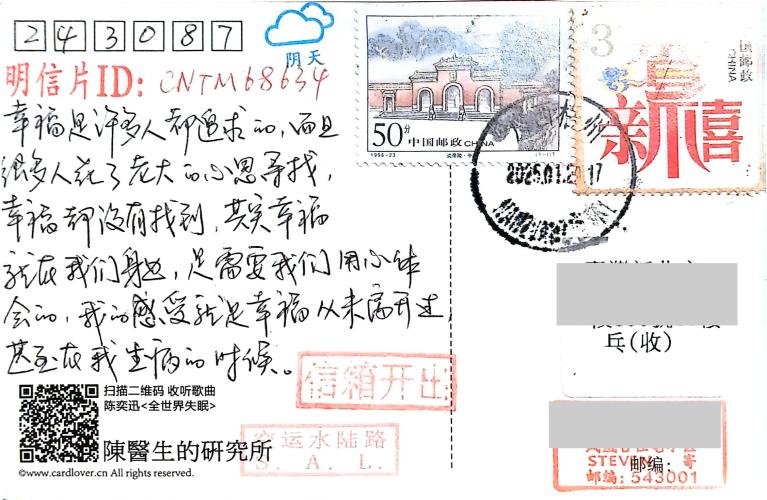 243087
阴天
明信片ID: CNTM68634
幸福是许多人都追求的,而且
很多人花了老大的心思寻找,
幸福却没有找到,其实幸福
就在我们身边,只需要我们用心体
会的,我的感受就是幸福从未离开过,
甚至在我生病的时候。
扫描二维码 收听歌曲
陈奕迅<全世界失眠>
陳醫生的研究所
©www.cardlover.cn All rights reserved.
信箱开出
空运水陆路
S. A. L.
50分
中国邮政 CHINA
1998-23
3
国邮政
CHINA
新禧
2025.01.2
17
乓(收)
STEVEN
寄
邮编:
邮编: 543001